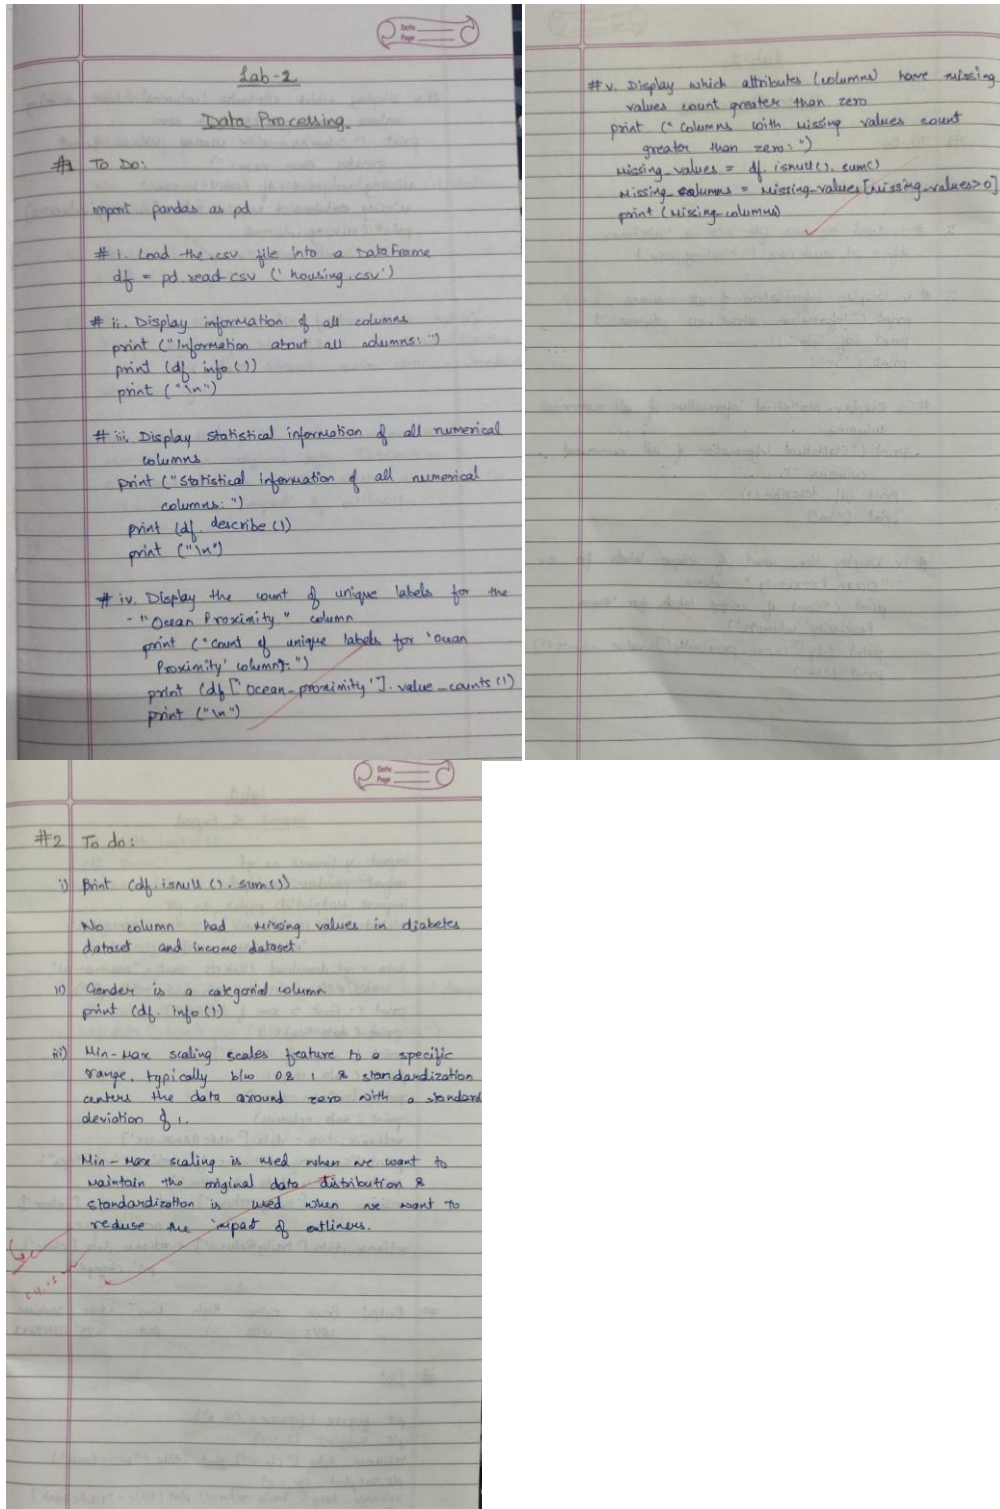 Date
Page
Lab-2
Data Processing
#1 To Do:
import pandas as pd
# i. Load the .csv file into a DataFrame
df = pd.read_csv ('housing.csv')
# ii. Display information of all columns
print ("Information about all columns:")
print (df.info())
print ("\n")
# iii. Display statistical information of all numerical
columns
print ("Statistical information of all numerical
columns:")
print (df.describe())
print ("\n")
# iv. Display the count of unique labels for the
- "Ocean Proximity" column
print ("Count of unique labels for 'Ocean
Proximity' column:")
print (df['ocean_proximity'].value_counts())
print ("\n")
# v. Display which attributes (columns) have missing
values count greater than zero
print ("Columns with missing values count
greater than zero:")
missing_values = df.isnull().sum()
missing_columns = missing_values[missing_values>0]
print (missing_columns)
Date
Page
#2 To do:
i) Print (df.isnull().sum())
No column had missing values in diabetes
dataset and income dataset
ii) Gender is a categorial column
print (df.info())
iii) Min-Max scaling scales feature to a specific
range, typically b/w 0 & 1 & standardization
centers the data around zero with a standard
deviation of 1.
Min-Max scaling is used when we want to
maintain the original data distribution &
standardization is used when we want to
reduse the impact of outliners.